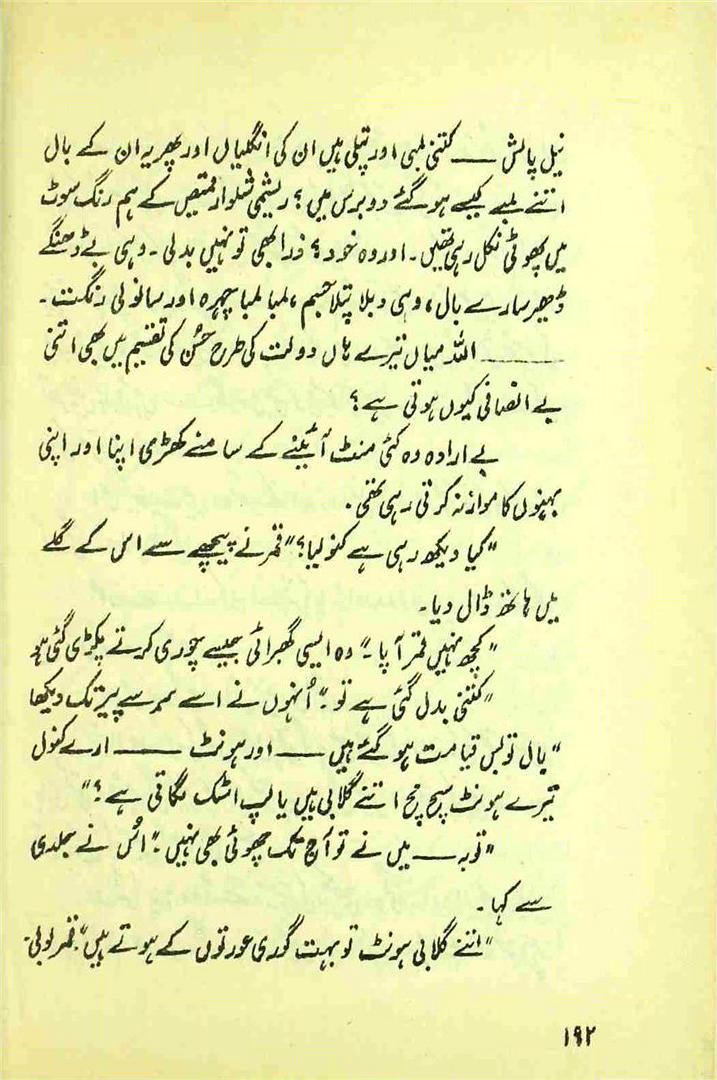 نیل پالش ـــــ کتنی لمبی اور پتلی ہیں ان کی انگلیاں اور پھر یہ ان کے بال
اتنے لمبے کیسے ہو گئے دو برس میں؟ ریشمی شلوار قمیص کے ہم رنگ سوٹ
میں پھوٹی نکل رہی تھیں۔ اور وہ خود؟ ذرا بھی تو نہیں بدلی۔ وہی بے ڈھنگے
ڈھیر سارے بال، وہی دبلا پتلا جسم، لمبا لمبا چہرہ اور سانولی رنگت۔
ـــــــــ اللہ میاں تیرے ہاں دولت کی طرح حُسن کی تقسیم میں بھی اتنی
بے انصافی کیوں ہوتی ہے؟
بے ارادہ وہ کئی منٹ آئینے کے سامنے کھڑی اپنا اور اپنی
بہنوں کا موازنہ کرتی رہی تھی۔
"کیا دیکھ رہی ہے کنولیا؟" قمر نے پیچھے سے اس کے گلے
میں ہاتھ ڈال دیا۔
"کچھ نہیں قمر آپا۔" وہ ایسی گھبرائی جیسے چوری کرتے پکڑی گئی ہو
"کتنی بدل گئی ہے تو۔" اُنہوں نے اسے سر سے پیر تک دیکھا
"بال تو بس قیامت ہو گئے ہیں ـــــ اور ہونٹ ـــــ ارے کنول
تیرے ہونٹ سچ مچ اتنے گلابی ہیں یا لپ اسٹک لگاتی ہے؟"
"توبہ ـــــ میں نے تو آج تک چھوئی بھی نہیں۔" اُس نے جلدی
سے کہا۔
"اتنے گلابی ہونٹ تو بہت گوری عورتوں کے ہوتے ہیں" قمر بولی۔
۱۹۲